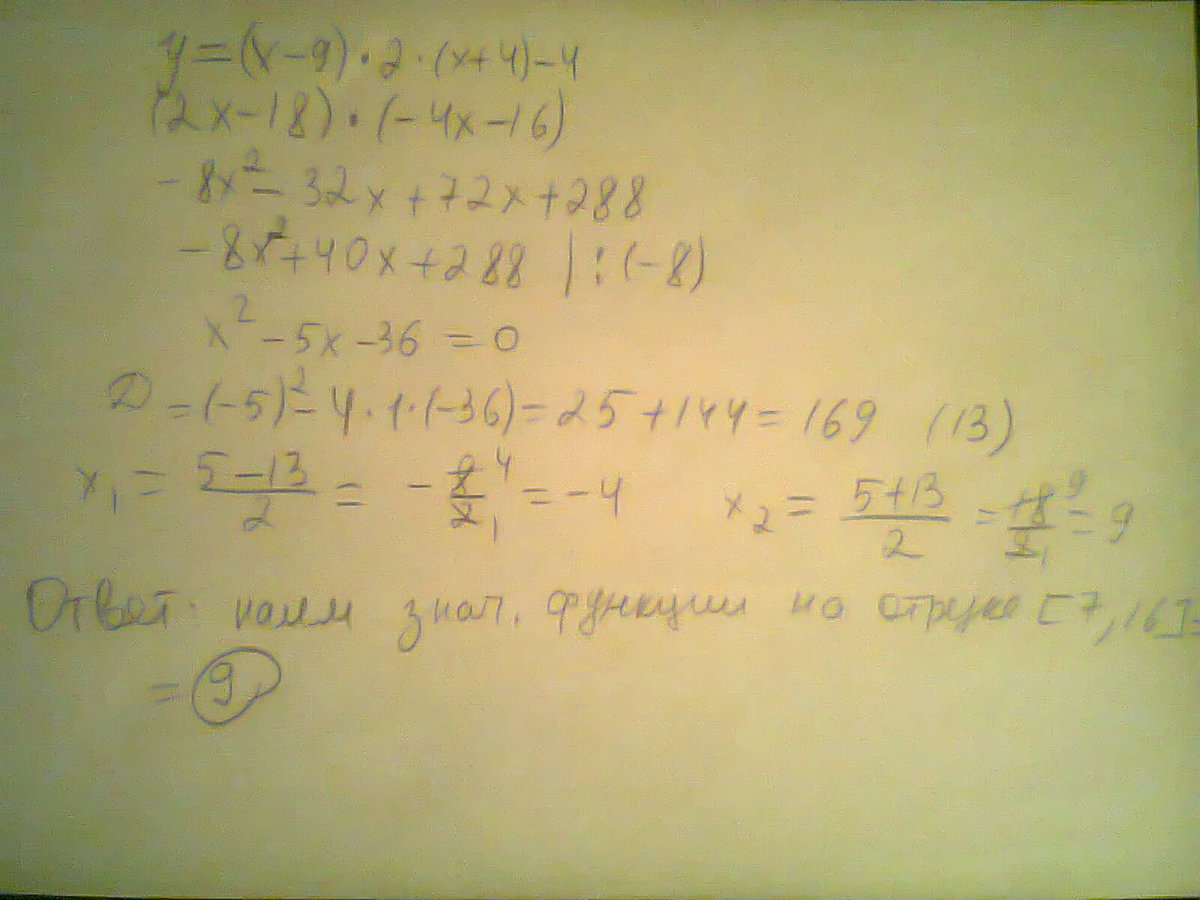 y = (x-9) · 2 · (x+4)-4
(2x-18) · (-4x-16)
-8x² - 32x + 72x + 288
-8x² + 40x + 288 | : (-8)
x² - 5x - 36 = 0
D = (-5)² - 4 · 1 · (-36) = 25 + 144 = 169 (13)
x₁ = (5-13)/2 = -8/2 = -4 x₂ = (5+13)/2 = 18/2 = 9
Ответ: наим знач. функции на отрезке [7, 16] =
= 9